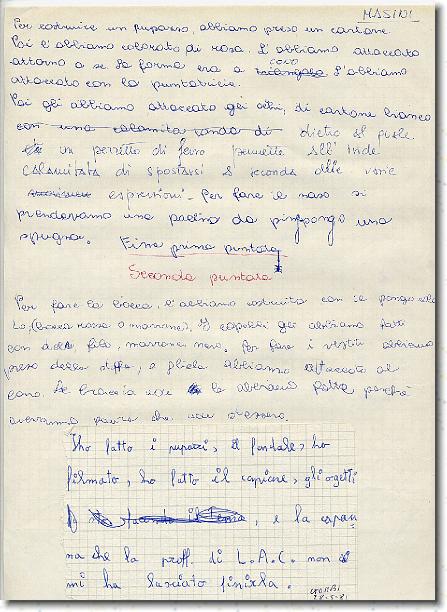 MASINI
Per costruire un pupazzo, abbiamo preso un cartone
Poi l'abbiamo colorato di rosa. L'abbiamo attaccato
attorno a se la forma era a cono triangolo L'abbiamo
attaccato con la puntatrice.
Poi gli abbiamo attaccato gli occhi, di cartone bianco
con una calamita tonda di dietro al quale
un pezzetto di ferro permette all'iride
calamitata di spostarsi a seconda delle varie
espressioni. Per fare il naso si
prendevamo una pallina da ping pong o una
spugna. Fine prima puntata
Seconda puntata
Per fare la bocca, l'abbiamo costruita con il pongo
(bocca rossa o marrone). I capelli gli abbiamo fatti
con del filo, marrone o nero. Per fare i vestiti abbiamo
preso della stoffa, e gliela abbiamo attaccata al
cono. Le braccia non le abbiamo fatte perché
avevamo paura che non
Ho fatto i pupazzi, il fondale, ho
filmato, ho fatto il copione, gli ogetti
e la capan
na che la proff. di L.A.C. non
mi ha lasciato finirla.